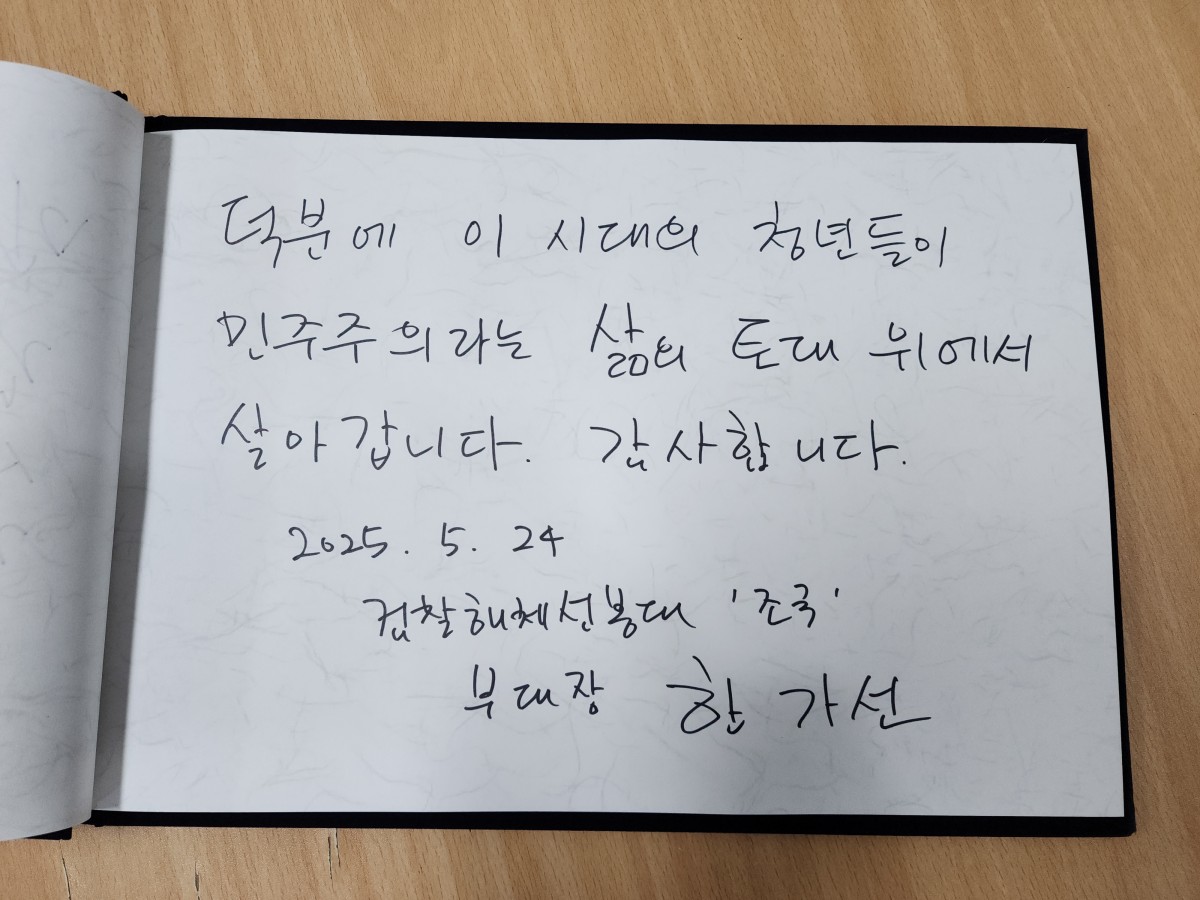 덕분에 이 시대의 청년들이
민주주의라는 삶의 토대 위에서
살아갑니다. 감사합니다.
2025. 5. 24
검찰해체선봉대 '조국'
부대장 한가선